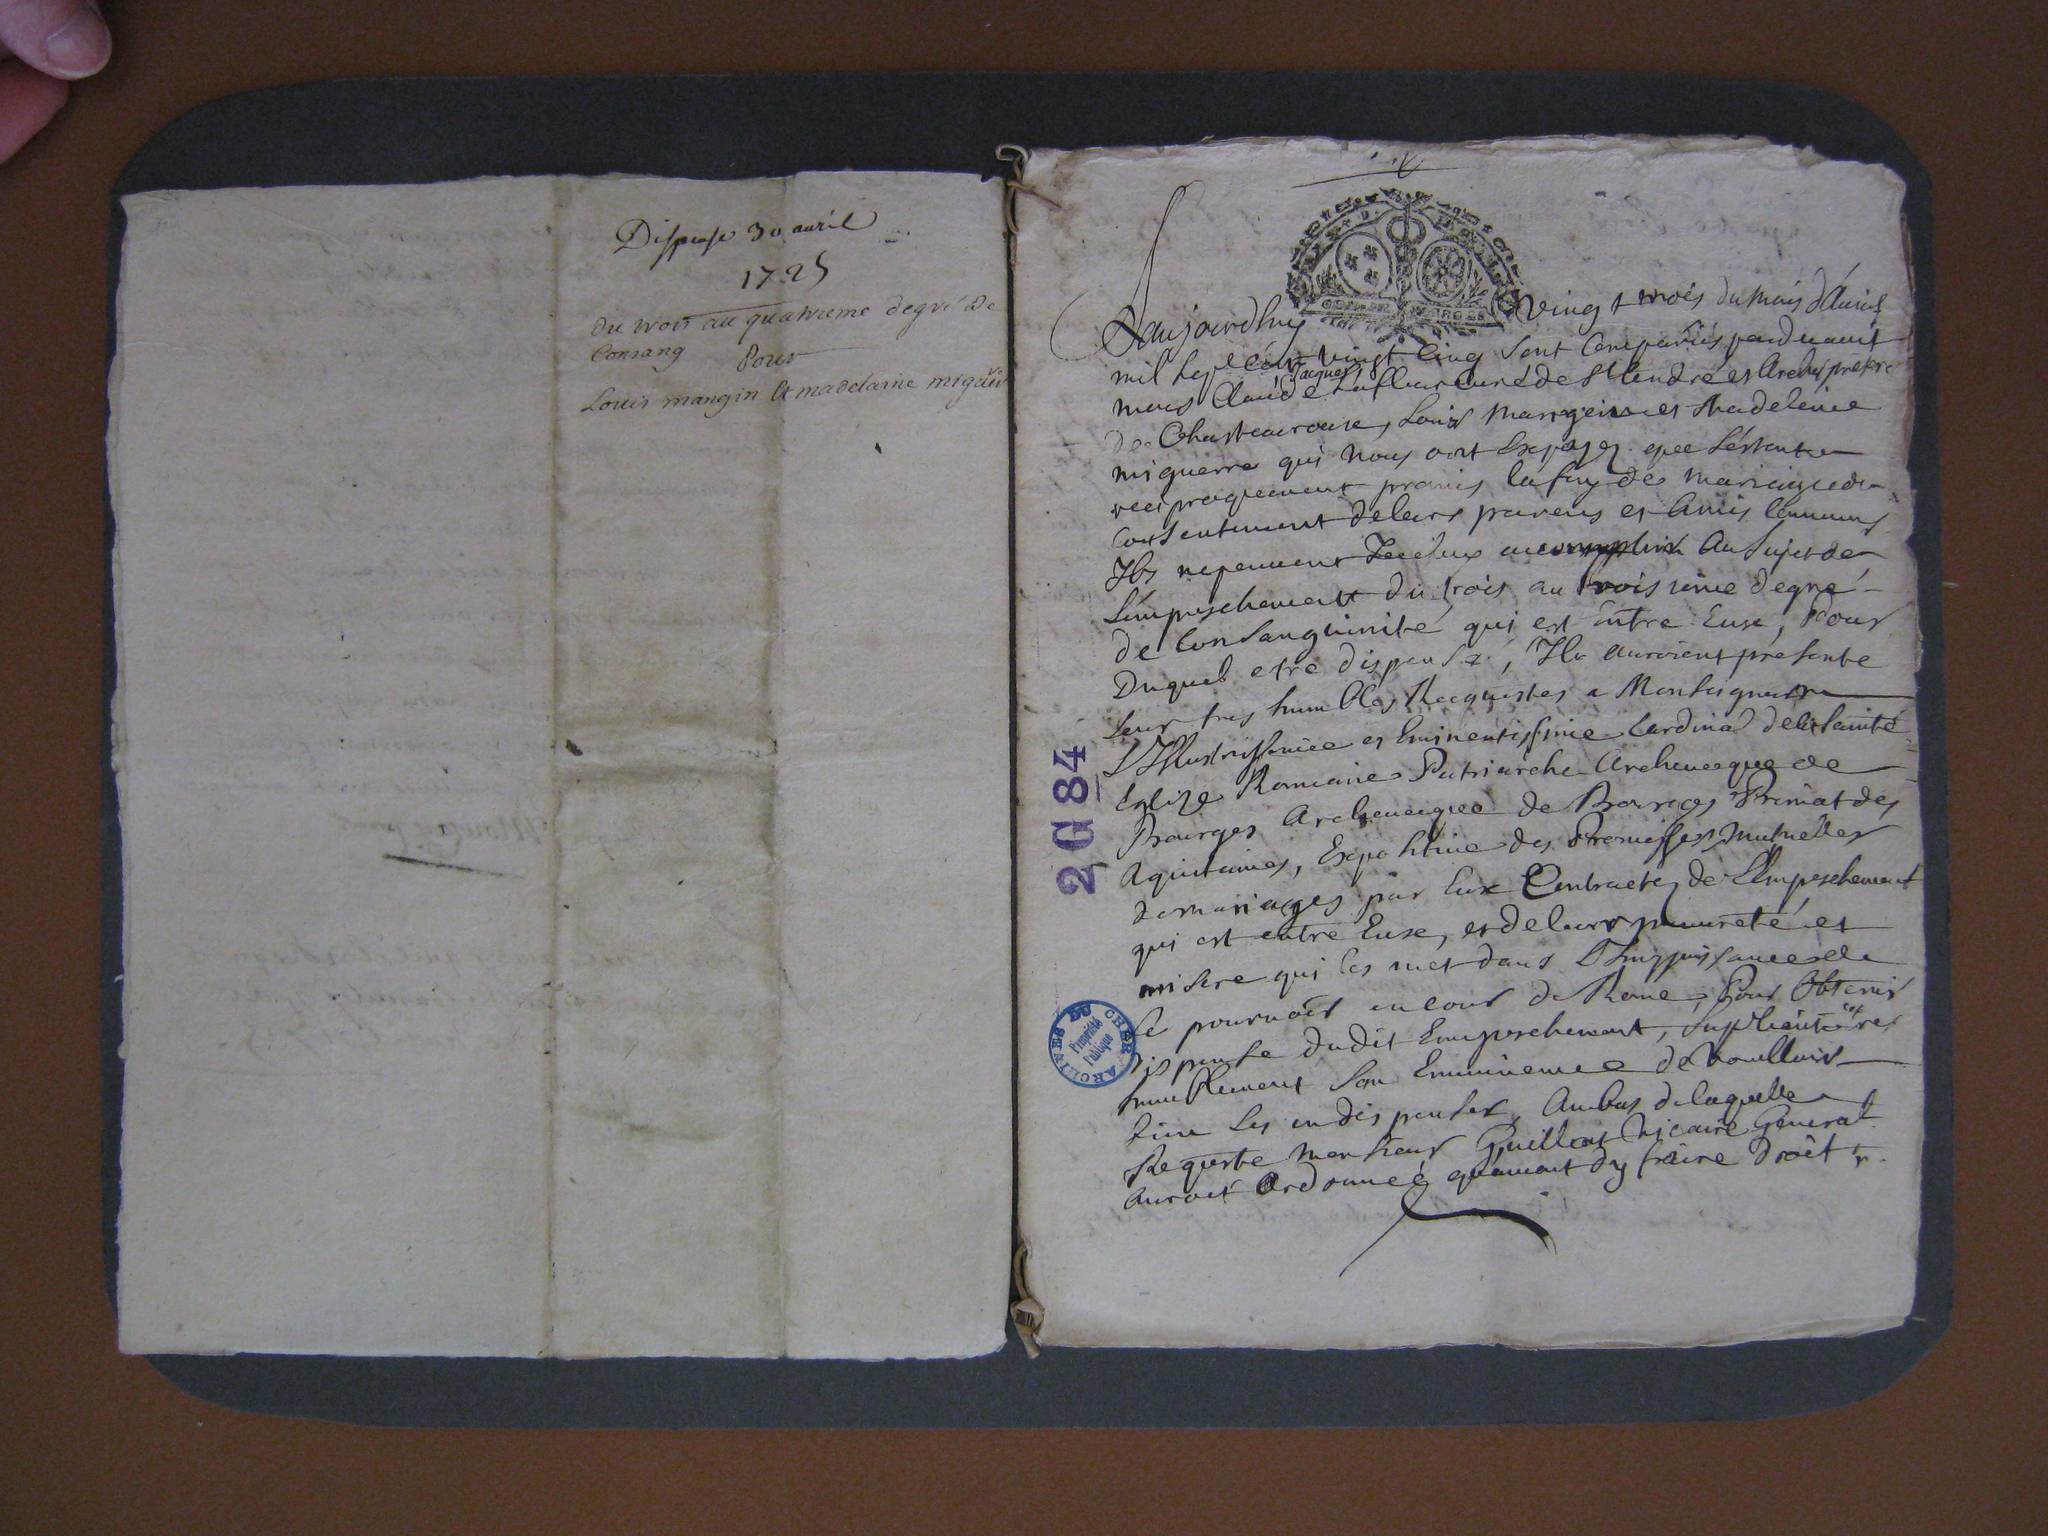 Dispense 30 avril
1725
du trois au quatrieme degré de
Consang
Pour
Louis mangin et madelaine miguer
Aujourdhuy vingt trois du mois d'Avril
mil sept cent vingt cinq sont comparus pardevant
nous Claude Jacques Lafleur curé de St Andre et Archiprestre
de Chasteauroux, Louis Mangein et Madeleine
miguerre qui nous ont exposez que s'estant
reciproquement promis la foy de mariage du
consentement de leurs parens et amis communs
Ils ne peuvent icelux accomplir au sujet de
L'empeschement du trois au troisieme degré
de Consanguinité qui est entre Eux, Pour
Duquel etre dispensez, Ils auroient presenté
leur tres humbles Requestes a Monseigneur
L'Illustrissime et Eminentissime Cardinal de la sainte
Eglize Romaine Patriarche Archeveque de
Bourges Archeveque de Bourges Primat des
Aquitaines, Expositive des Promesses Mutuelles
de mariages par Eux Contractez de L'Empeschement
qui est entre Eux, et de leur pauvreté et
misere qui les met dans L'Impuissance de
se pourvoir en cour de Rome, Pour Obtenir
dispense dudit Empeschement, supliant tres
humblement son Eminence de voulloir
bien les en dispenser, Au bas de laquelle
Requeste monsieur Guillot Vicaire General
auroit Ordonné qu'avant d'y faire droit
2 G 84
ARCHIVES DU CHER
Propriété
Publique